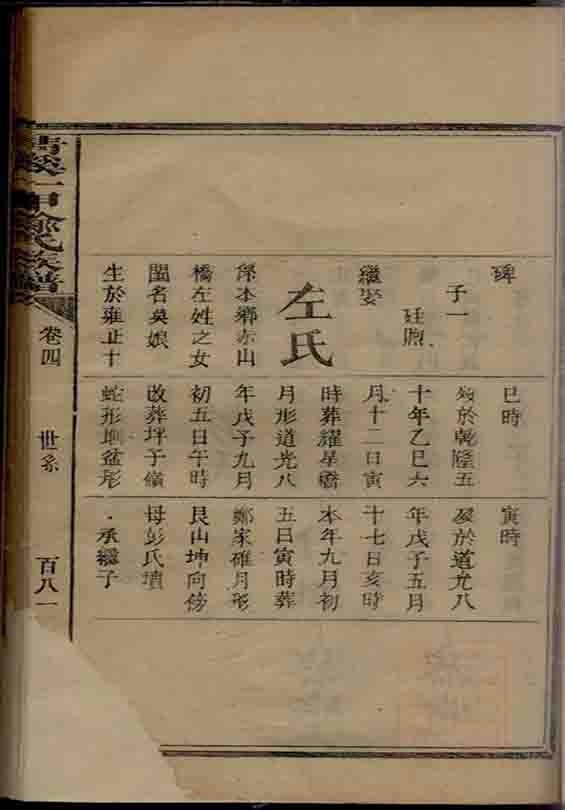 碑
子一
廷煦
繼娶
左氏
係本鄉東山
橋左姓之女
閨名英娘
生於雍正十
巳時
歿於乾隆五
十年乙巳六
月十二日寅
時葬耀星橋
月形道光八
年戊子九月
初五日午時
改葬坪子嶺
蛇形坰盆形
寅時
歿於道光八
年戊子五月
十七日亥時
本年九月初
五日寅時葬
鄭家碓月形
艮山坤向傍
母彭氏墳
承繼子
一甲 氏族譜
卷四
世系
百八一